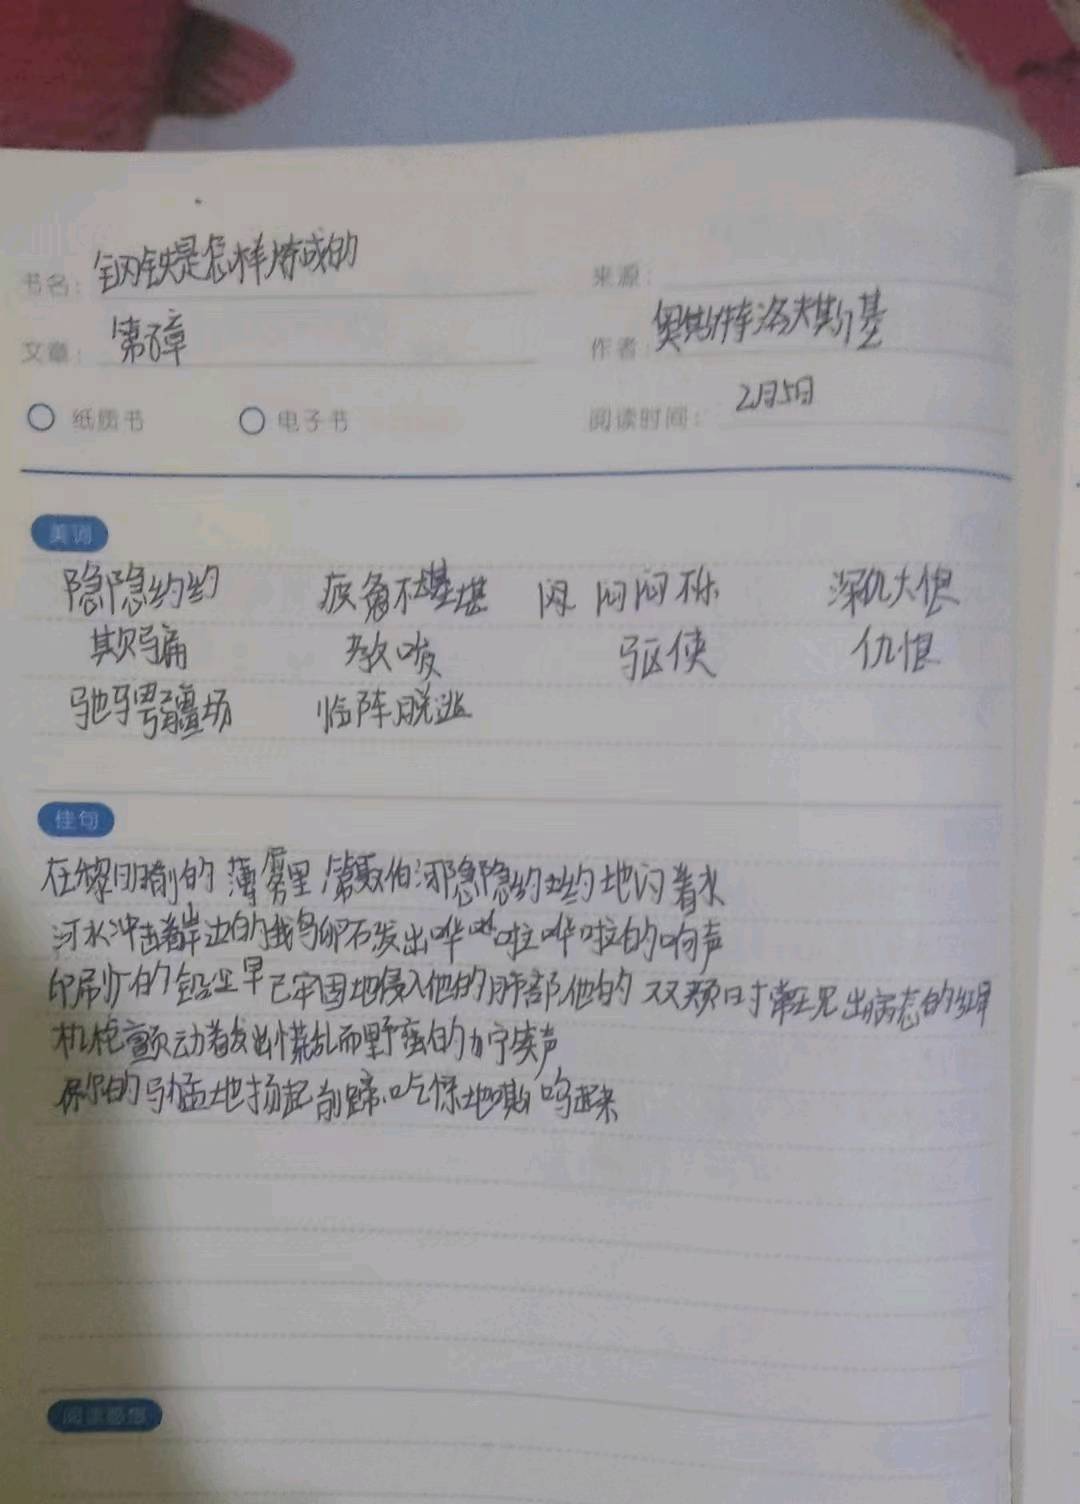 书名: 钢铁是怎样炼成的
来源:
文章: 第8章
作者: 奥斯特洛夫斯基
纸质书 电子书 阅读时间: 2月5日
美词
隐隐约约 疲惫不堪 闷闷不乐 深仇大恨
欺骗 教唆 驱使 仇恨
驰骋疆场 临阵脱逃
佳句
在黎明前的薄雾里,第聂伯河隐隐约约地闪着水
河水冲击着岸边的鹅卵石发出哗啦哗啦的响声
印刷厂的铅尘早已牢固地侵入他的肺部,他的双颊时常呈现出病态的红晕
机枪颤动着发出慌乱而野蛮的狞笑声
你的马猛地扬起前蹄,吃惊地嘶鸣起来
阅读感悟